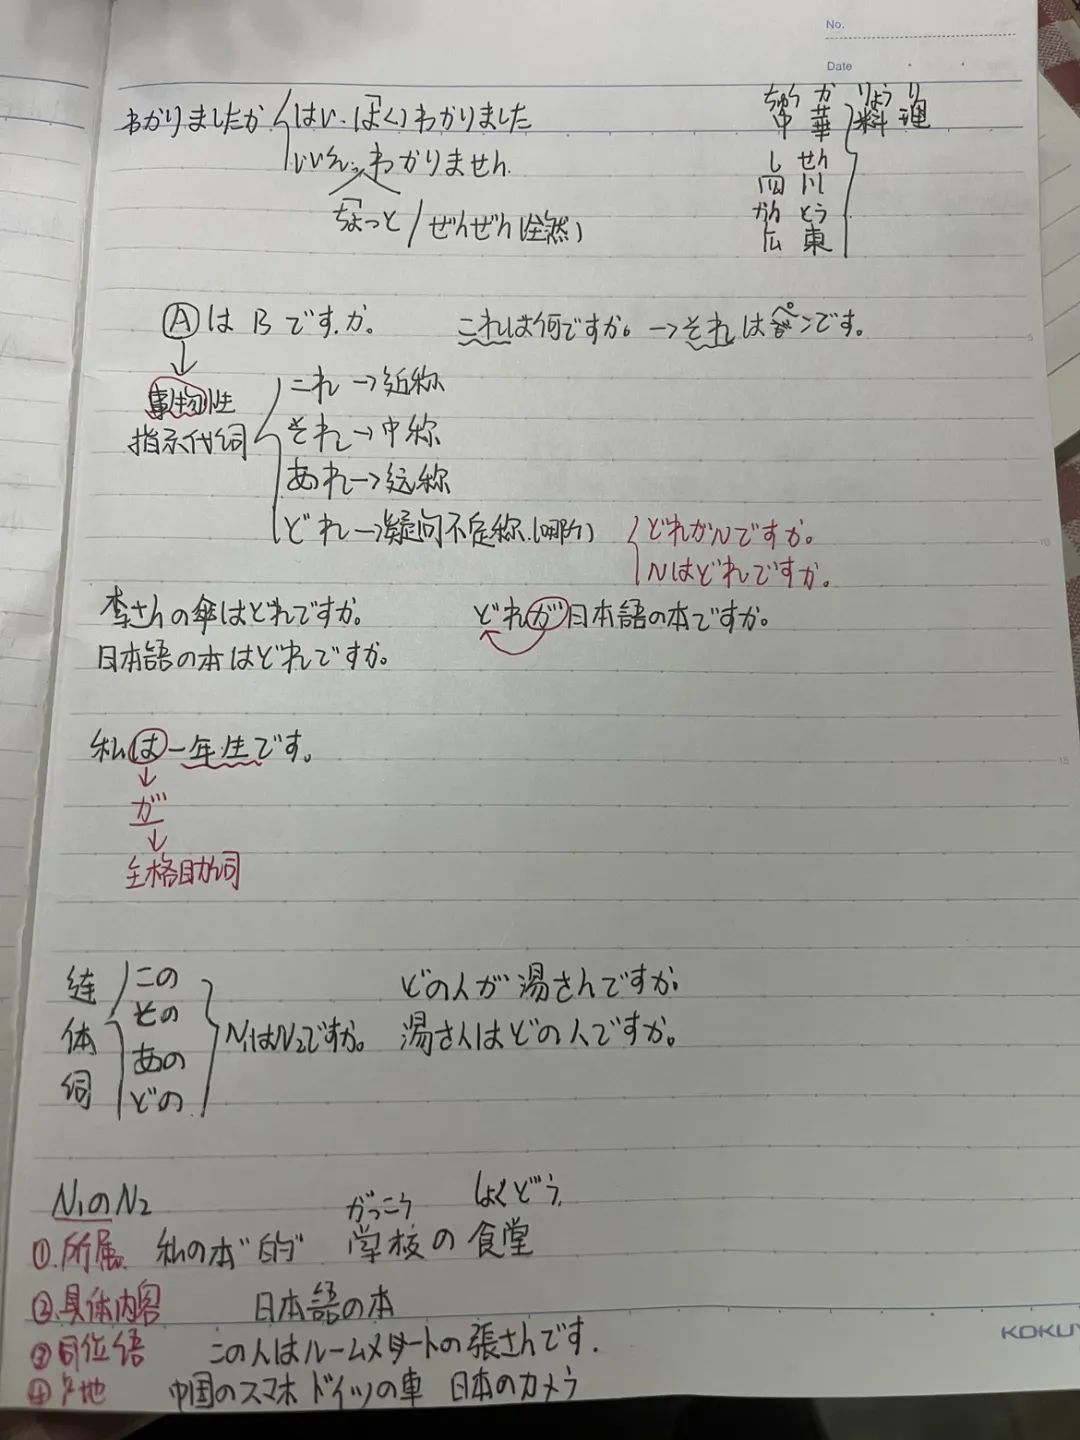 No.
Date
わかりましたか はい.(よく)わかりました
いいえ、わかりません
ちょっと/ぜんぜん(全然)
ちゅう か りょう り
中 華 料 理
し せん
四 川
かん とう
広 東
Ⓐは B ですか。 これは何ですか。→それはペンです。
事物性
指示代词
これ→近称
それ→中称
あれ→远称
どれ→疑问不定称.(哪个)
どれがNですか。
Nはどれですか。
李さんの傘はどれですか。 どれが日本語の本ですか。
日本語の本はどれですか。
私は一年生です。
↓
が
↓
主格助词
连体词
この
その
あの
どの
N₁はN₂ですか。
どの人が湯さんですか。
湯さんはどの人ですか。
N₁のN₂
がっこう しょくどう
①.所属. 私の本"的" 学校の食堂
②.具体内容 日本語の本
③同位语 この人はルームメートの張さんです.
④产地 中国のスマホ ドイツの車 日本のカメラ
KOKUY